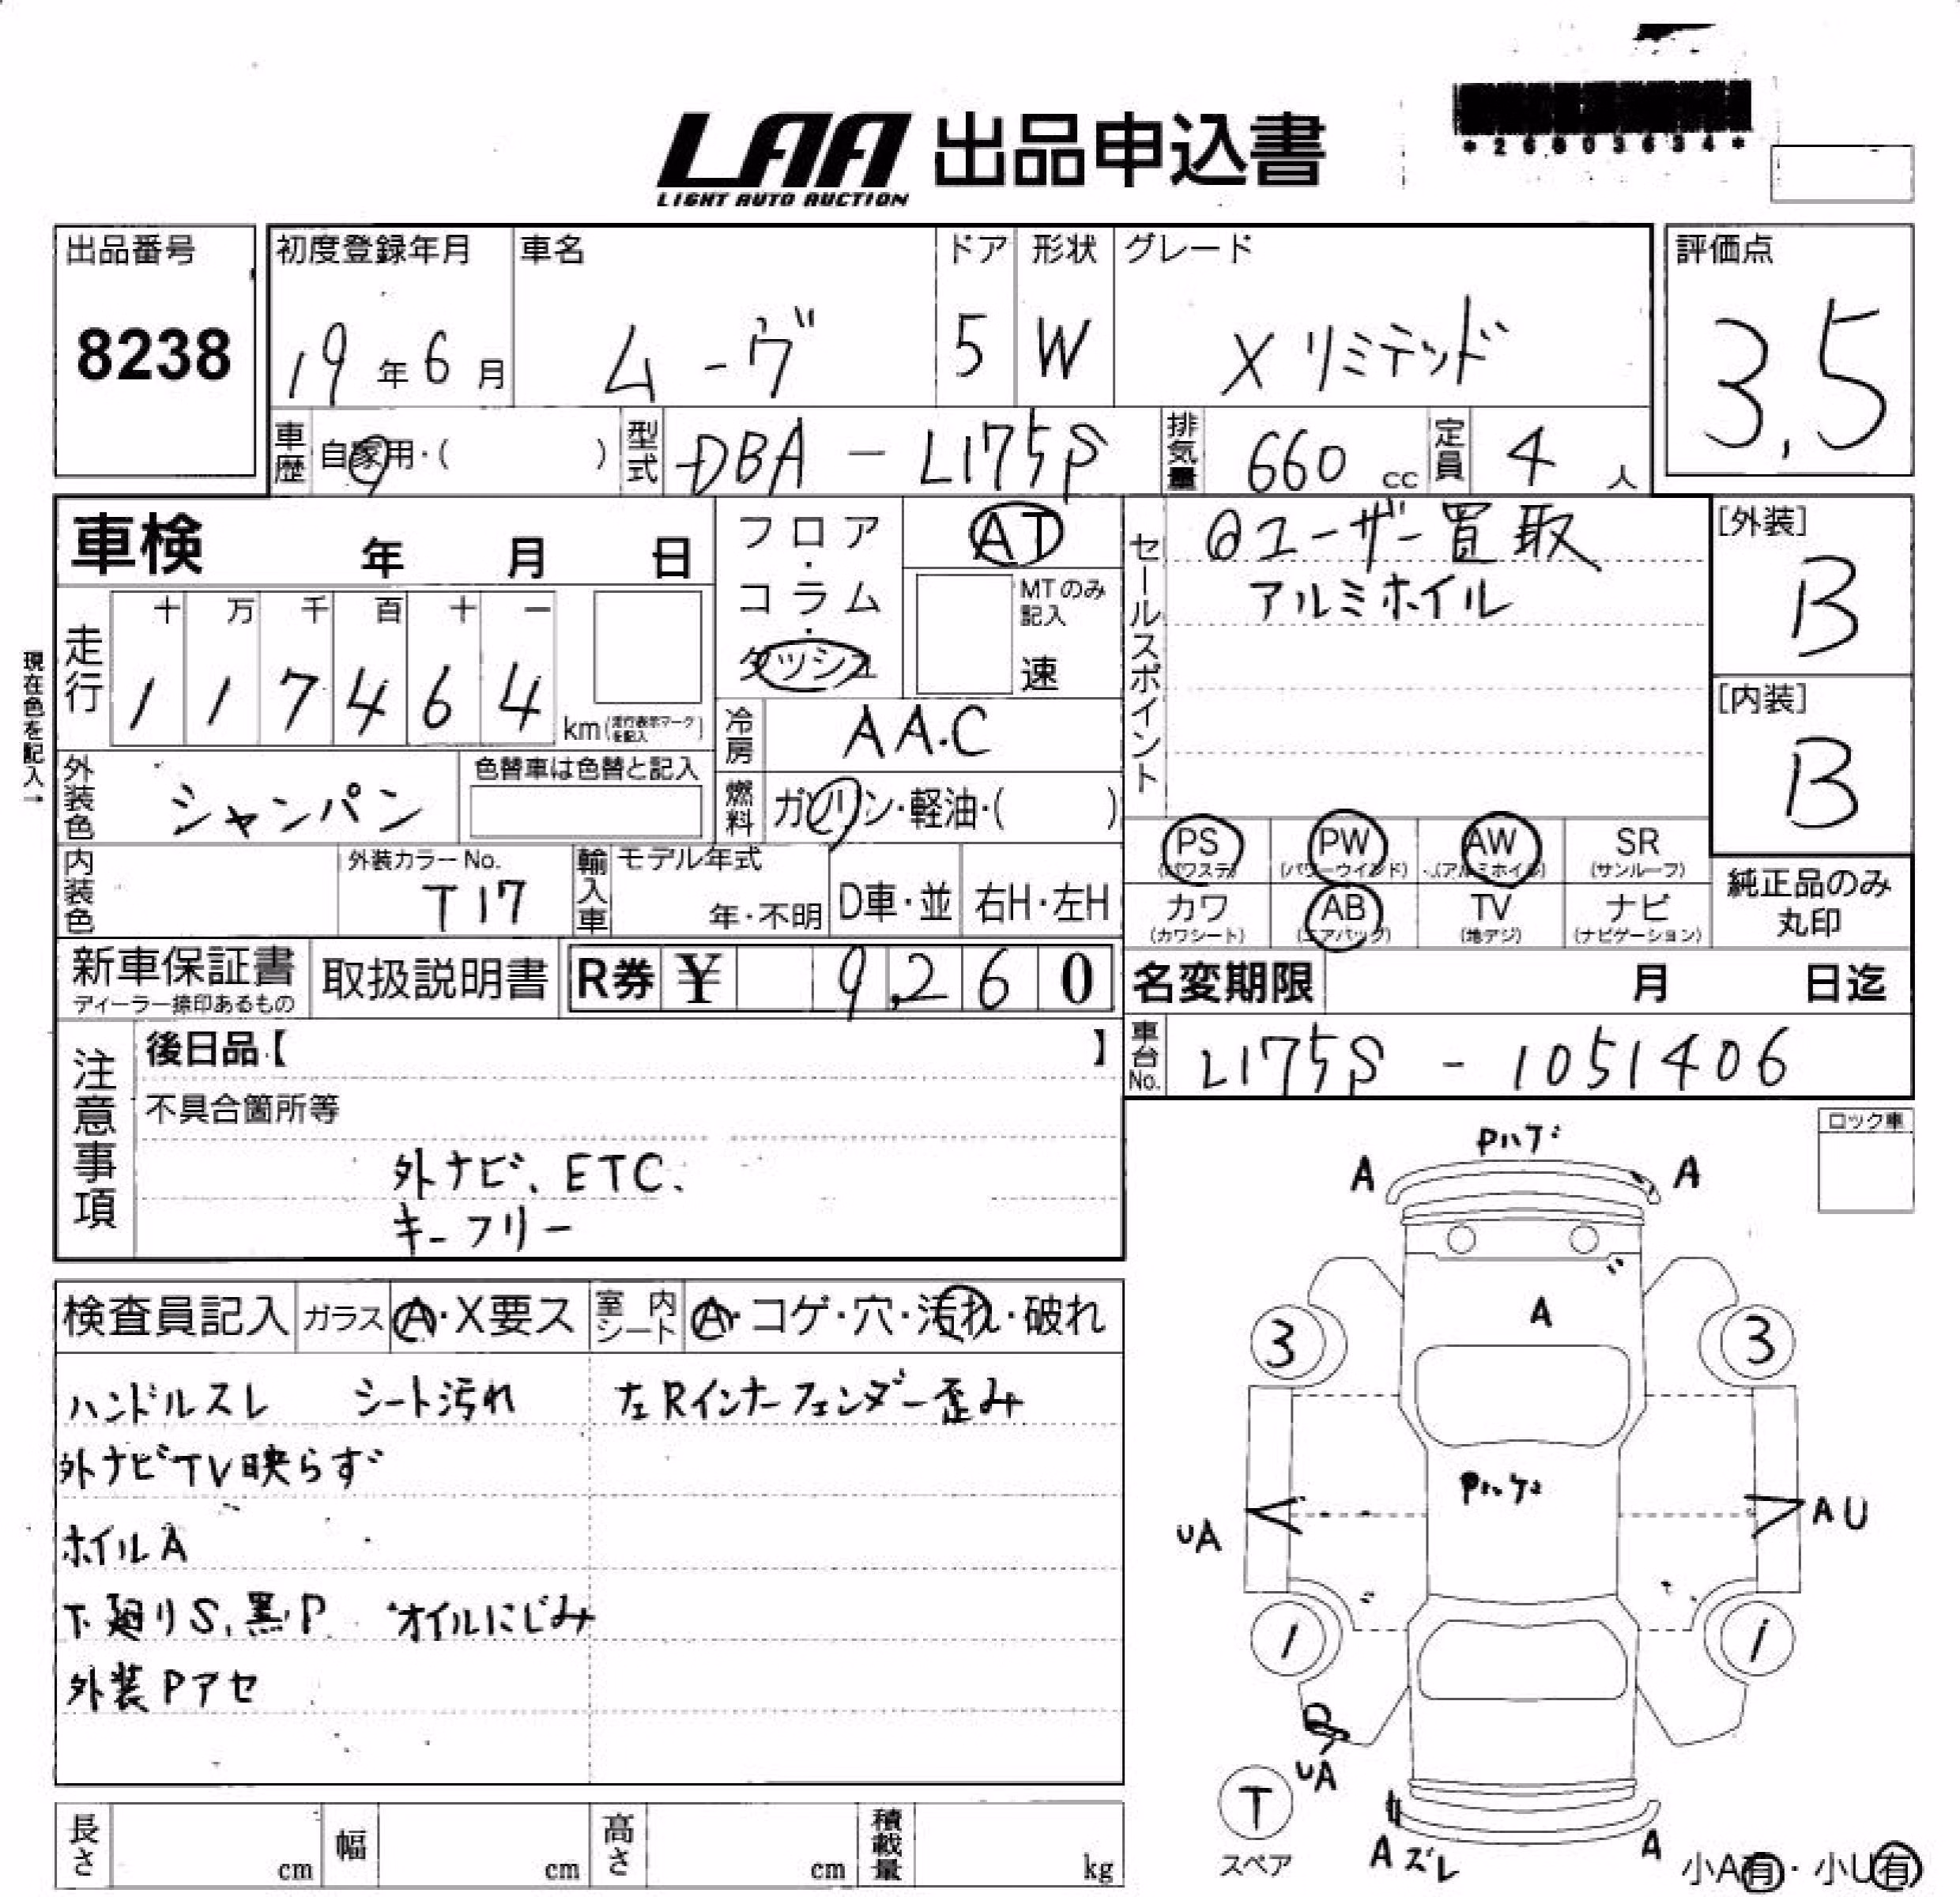 LAA 出品申込書
LIGHT AUTO AUCTION
*26803634*
出品番号
8238
初度登録年月
19年6月
車名
ムーヴ
ドア
5
形状
W
グレード
Xリミテッド
評価点
3.5
車歴
自家用・( )
型式
DBA-L175S
排気量
660 cc
定員
4人
車検 年 月 日
現在色を記入→
走行
十 万 千 百 十 一
1 1 7 4 6 4 km(走行表示マークを記入)
フロア・コラム・ダッシュ
AT
MTのみ記入
速
冷房
AAC
燃料
ガソリン・軽油・( )
外装色
シャンパン
色替車は色替と記入
内装色
外装カラーNo.
T17
輸入車
モデル年式
年・不明
D車・並
右H・左H
セールスポイント
ユーザー買取
アルミホイル
[外装]
B
[内装]
B
PS (パワステ)
PW (パワーウインド)
AW (アルミホイル)
SR (サンルーフ)
カワ (カワシート)
AB (エアバッグ)
TV (地デジ)
ナビ (ナビゲーション)
純正品のみ丸印
新車保証書
ディーラー捺印あるもの
取扱説明書
R券 ¥ 9,260
名変期限 月 日迄
車台No.
L175S - 1051406
注意事項
後日品【 】
不具合箇所等
外ナビ、ETC、
キーフリー
ロック車
検査員記入
ガラス
A・X要ス
室内シート
A・コゲ・穴・汚れ・破れ
ハンドルスレ シート汚れ 左Rインナーフェンダー歪み
外ナビTV映らず
ホイルA
下廻りS、黒P オイルにじみ
外装Pアセ
Pハゲ
A A
A
3 3
Pハゲ
UA AU
1 1
UA
T
スペア
Aズレ A
小A有・小U有
長さ cm
幅 cm
高さ cm
積載量 kg